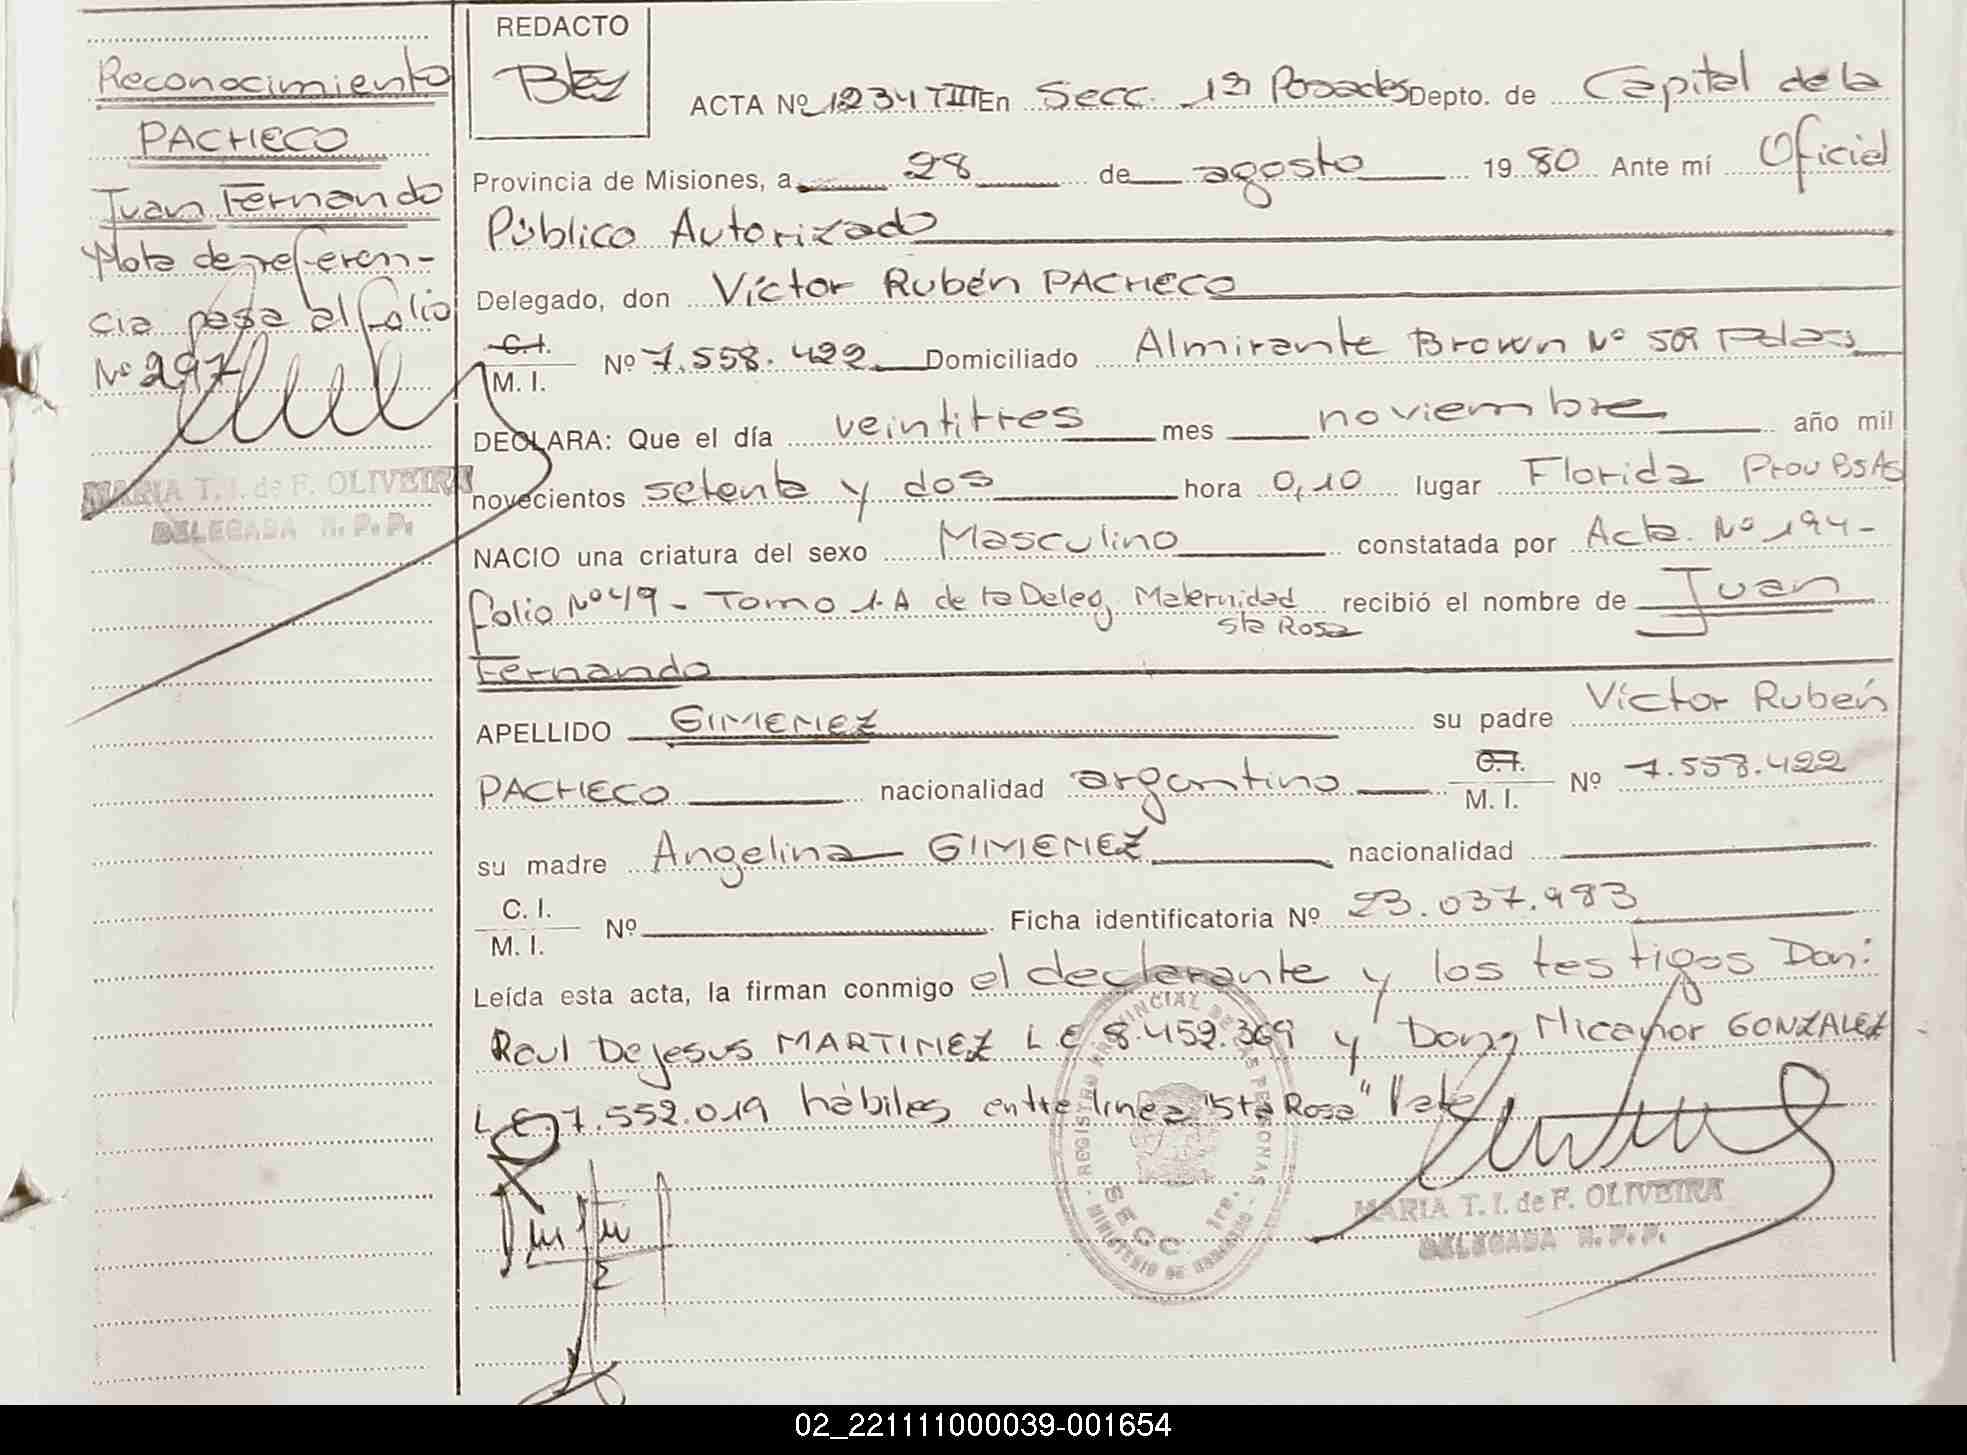 Reconocimiento
PACHECO
Juan Fernando
Nota de referen-
cia pasa al folio
Nº 297
MARIA T. I. de F. OLIVEIRA
DELEGADA R. P. P.
REDACTO
ACTA Nº 1234 TIII En Secc. 1ª Posadas Depto. de Capital de la
Provincia de Misiones, a 28 de agosto 1980 Ante mí Oficial
Público Autorizado
Delegado, don Víctor Rubén PACHECO
C.I.
M. I. Nº 7.558.422 Domiciliado Almirante Brown Nº 509 Pdas
DECLARA: Que el día veintitres mes noviembre año mil
novecientos setenta y dos hora 0,10 lugar Florida Prov BsAs
NACIO una criatura del sexo Masculino constatada por Acta Nº 194-
folio Nº 49 - Tomo 1-A de la Deleg. Maternidad recibió el nombre de Juan
Sta Rosa
Fernando
APELLIDO GIMENEZ su padre Víctor Rubén
PACHECO nacionalidad argentino C.I. M. I. Nº 7.558.422
su madre Angelina GIMENEZ nacionalidad
C. I.
M. I. Nº Ficha identificatoria Nº 23.037.983
Leída esta acta, la firman conmigo el declarante y los testigos Don:
Raul De jesus MARTINEZ L E 8.459.369 y Don Nicanor GONZALEZ
L E 7.552.019 hábiles entre linea "Sta Rosa" Vale
REGISTRO PROVINCIAL DE LAS PERSONAS
SECC 1ra.
MINISTERIO DE GOBIERNO
MARIA T. I. de F. OLIVEIRA
DELEGADA R. P. P.
02_221111000039-001654